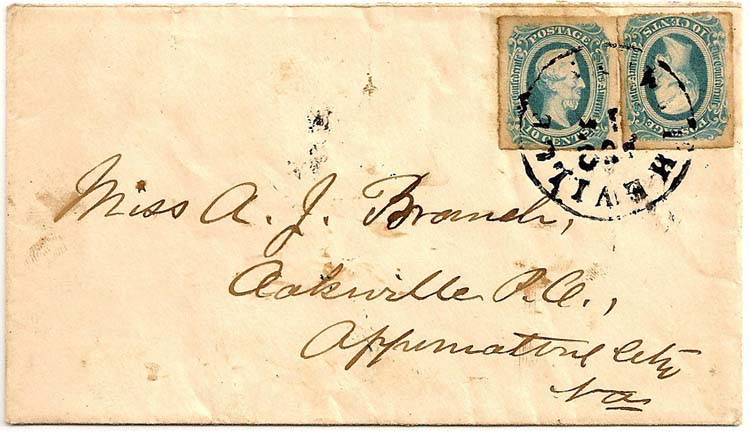 POSTAGE
10 CENTS
POSTAGE
10 CENTS
Miss A. J. Branch,
Oakville P.O.,
Appomattox Cty
Va